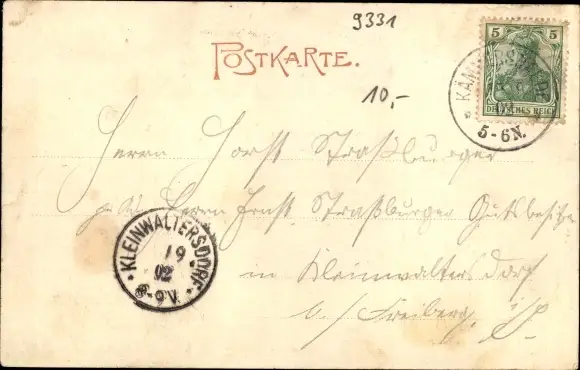 9331
POSTKARTE.
10,-
5 5
DEUTSCHES REICH
5-6N.
Herrn Horst Straßburger
Herrn Ernst Straßburger Gutsbesitzer
KLEINWALTERSDORF
19
02
8-9V.
in Kleinwaltersdorf
b./ Freiberg, i/S.